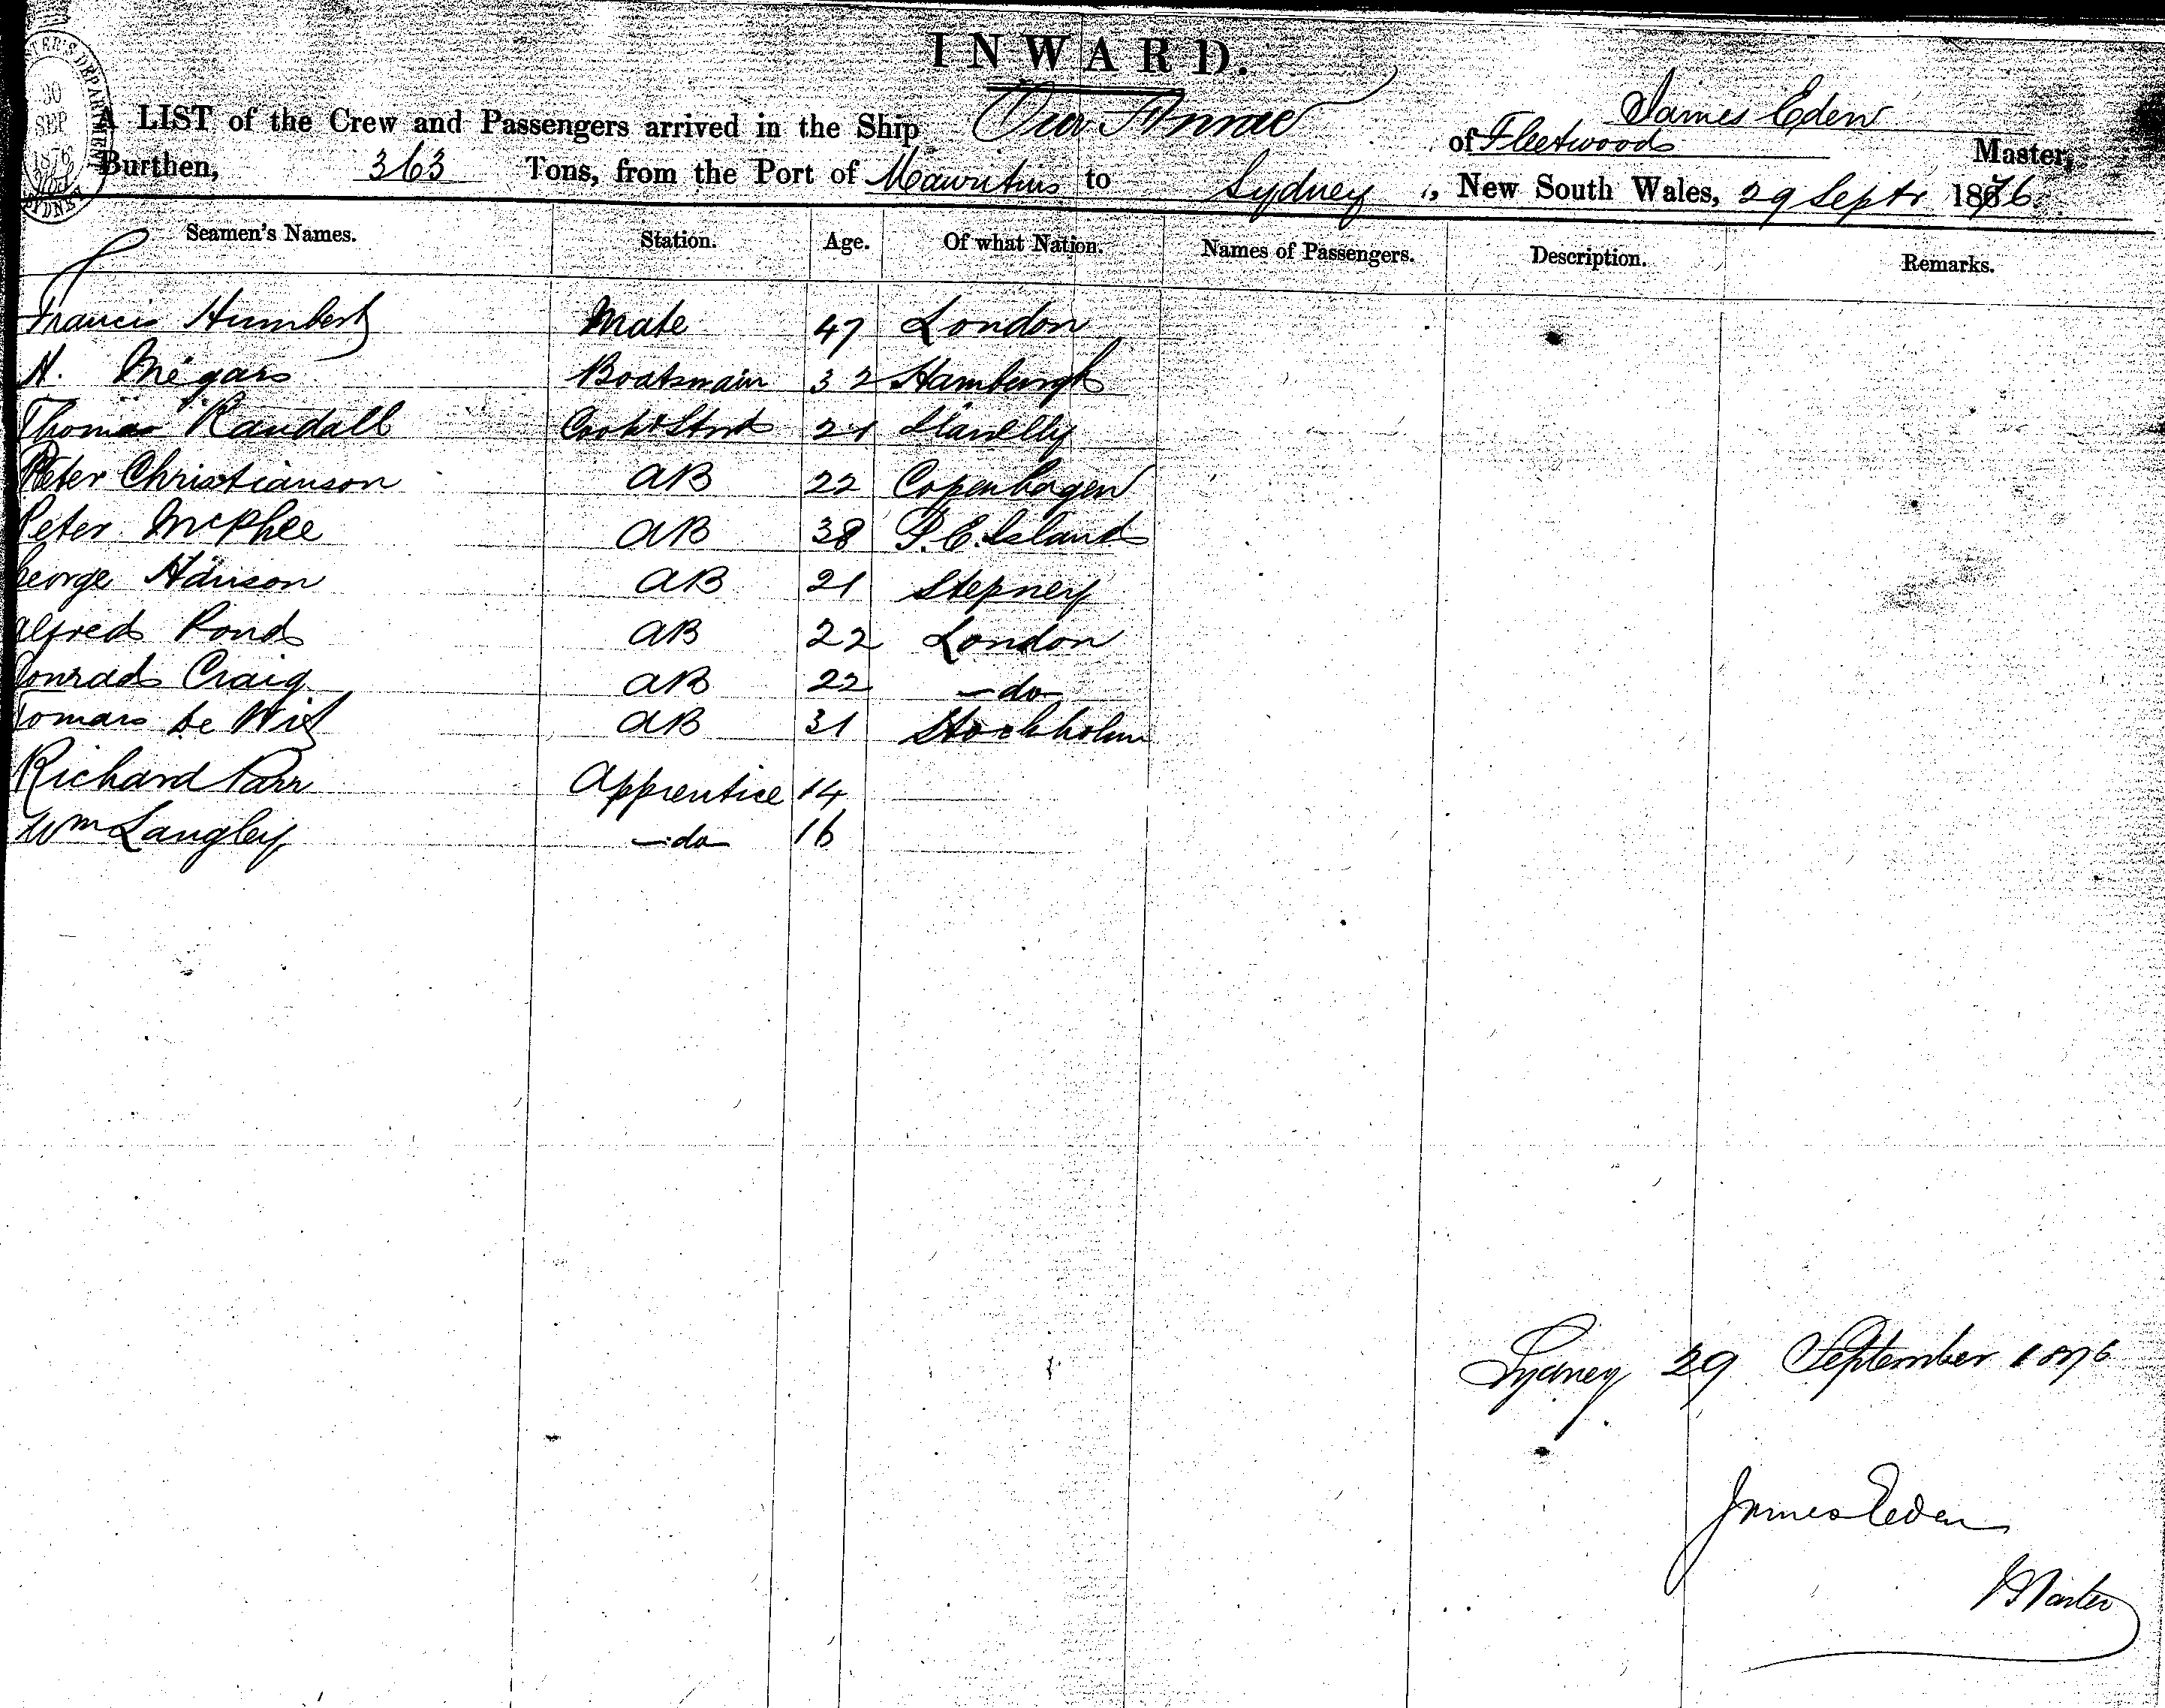 INWARD.
A LIST of the Crew and Passengers arrived in the Ship Our Annie of Fleetwood James Eden Master,
Burthen, 363 Tons, from the Port of Mauritius to Sydney, New South Wales, 29 Septr 1876
30
SEP
1876
Seamen's Names. Station. Age. Of what Nation. Names of Passengers. Description. Remarks.
Francis Humbert Mate 47 London
H. Megars Boatswain 32 Hamburgh
Thomas Randall Cook & Stwd 21 Llanelly
Peter Christianson AB 22 Copenhagen
Peter McPhee AB 38 P.E. Island
George Hanson AB 21 Stepney
Alfred Pond AB 22 London
Conrad Craig AB 22 - do -
De Wit AB 31 Stockholm
Richard Parr Apprentice 14
Wm Langley - do - 16
Sydney 29 September 1876
James Eden
Master